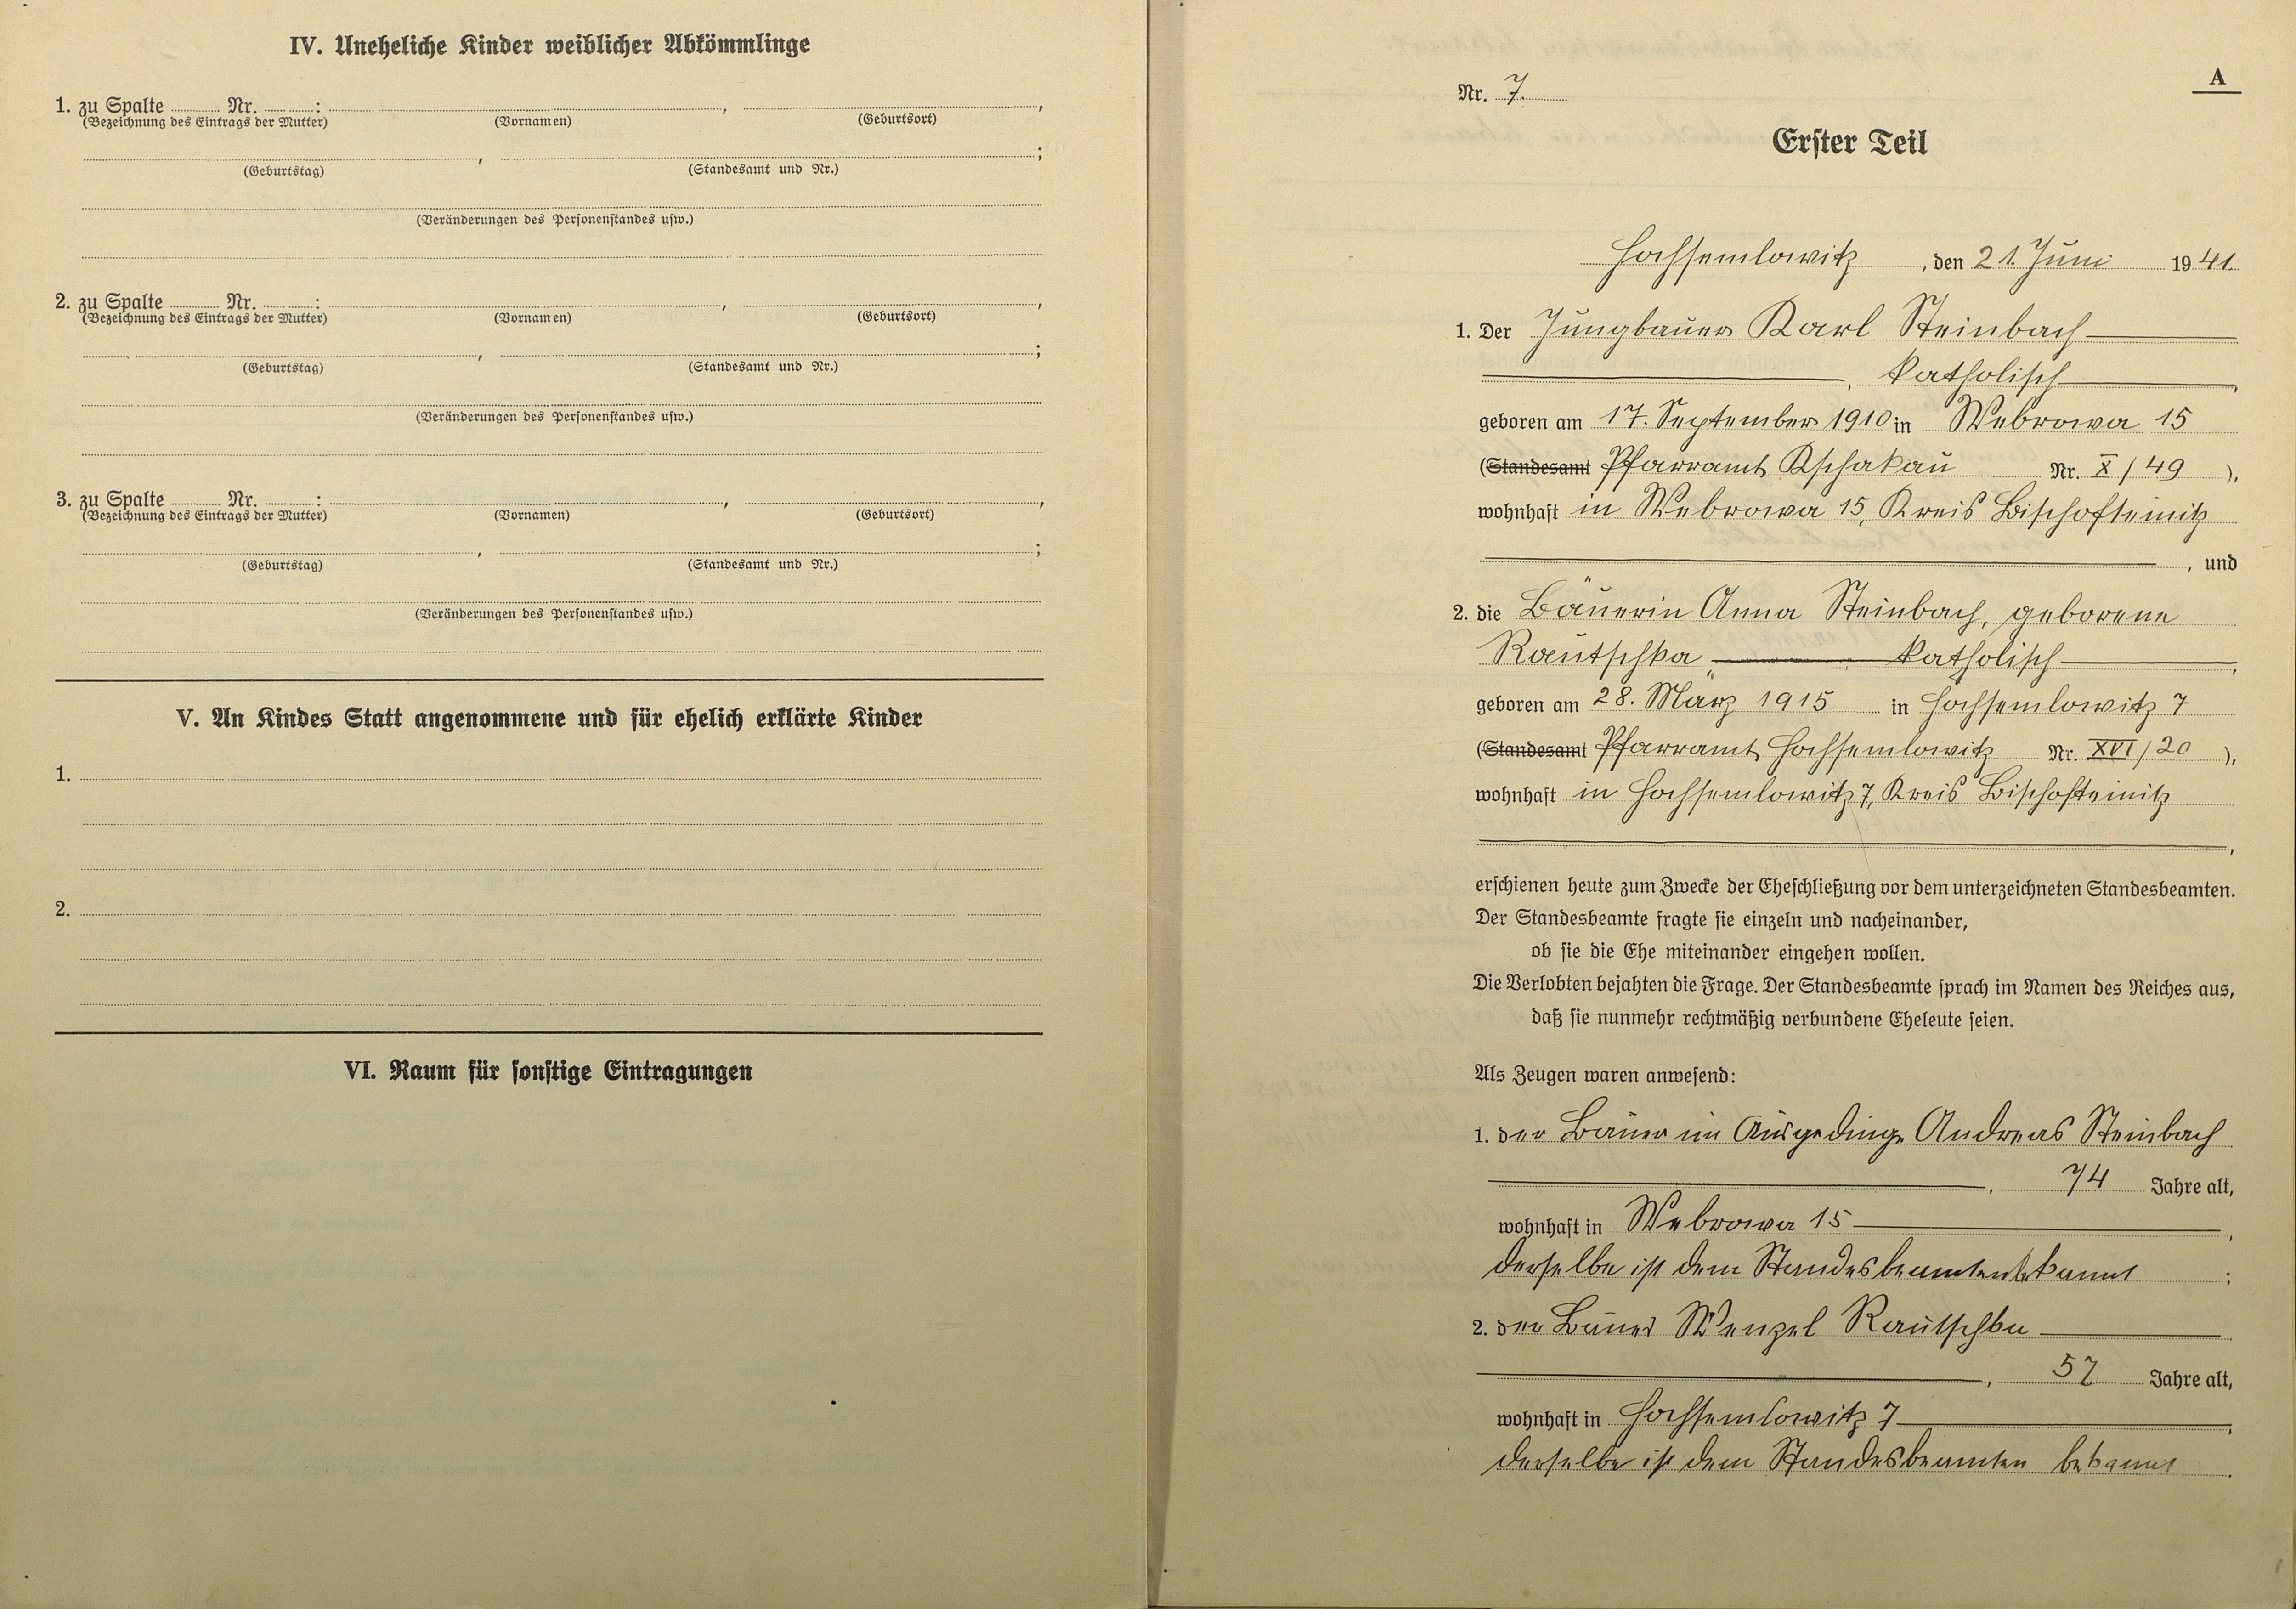 IV. Uneheliche Kinder weiblicher Abkömmlinge
1. zu Spalte ........ Nr. ........: ........, ........,
(Bezeichnung des Eintrags der Mutter) (Vornamen) (Geburtsort)
........, ........;
(Geburtstag) (Standesamt und Nr.)
(Veränderungen des Personenstandes usw.)
2. zu Spalte ........ Nr. ........: ........, ........,
(Bezeichnung des Eintrags der Mutter) (Vornamen) (Geburtsort)
........, ........;
(Geburtstag) (Standesamt und Nr.)
(Veränderungen des Personenstandes usw.)
3. zu Spalte ........ Nr. ........: ........, ........,
(Bezeichnung des Eintrags der Mutter) (Vornamen) (Geburtsort)
........, ........;
(Geburtstag) (Standesamt und Nr.)
(Veränderungen des Personenstandes usw.)
V. An Kindes Statt angenommene und für ehelich erklärte Kinder
1.
2.
VI. Raum für sonstige Eintragungen
A
Nr. 7.
Erster Teil
Hochsemlowitz, den 21. Juni 1941.
1. Der Jungbauer Karl Steinbach
, katholisch,
geboren am 17. September 1910 in Webrowa 15
(Standesamt Pfarramt Kschakau Nr. X/49),
wohnhaft in Webrowa 15, Kreis Bischofteinitz
, und
2. die Bäuerin Anna Steinbach, geborene
Rautschka, katholisch,
geboren am 28. März 1915 in Hochsemlowitz 7
(Standesamt Pfarramt Hochsemlowitz Nr. XVI/20),
wohnhaft in Hochsemlowitz 7, Kreis Bischofteinitz
,
erschienen heute zum Zwecke der Eheschließung vor dem unterzeichneten Standesbeamten.
Der Standesbeamte fragte sie einzeln und nacheinander,
ob sie die Ehe miteinander eingehen wollen.
Die Verlobten bejahten die Frage. Der Standesbeamte sprach im Namen des Reiches aus,
daß sie nunmehr rechtmäßig verbundene Eheleute seien.
Als Zeugen waren anwesend:
1. der Bauer im Ausgedinge Andreas Steinbach
, 74 Jahre alt,
wohnhaft in Webrowa 15,
derselbe ist dem Standesbeamten bekannt;
2. der Bauer Wenzel Rautschka
, 57 Jahre alt,
wohnhaft in Hochsemlowitz 7,
derselbe ist dem Standesbeamten bekannt.